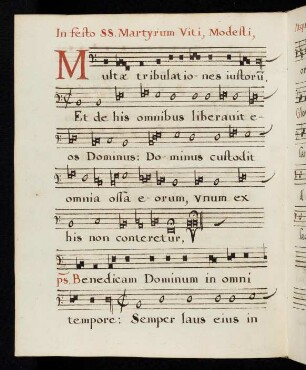 In festo SS. Martyrum Viti, Modesti,
Multæ tribulationes iustorũ,
Et de his omnibus liberauit e-
os Dominus: Dominus custodit
omnia ossa eorum, vnum ex
his non conteretur,
ps. Benedicam Dominum in omni
tempore: Semper laus eius in